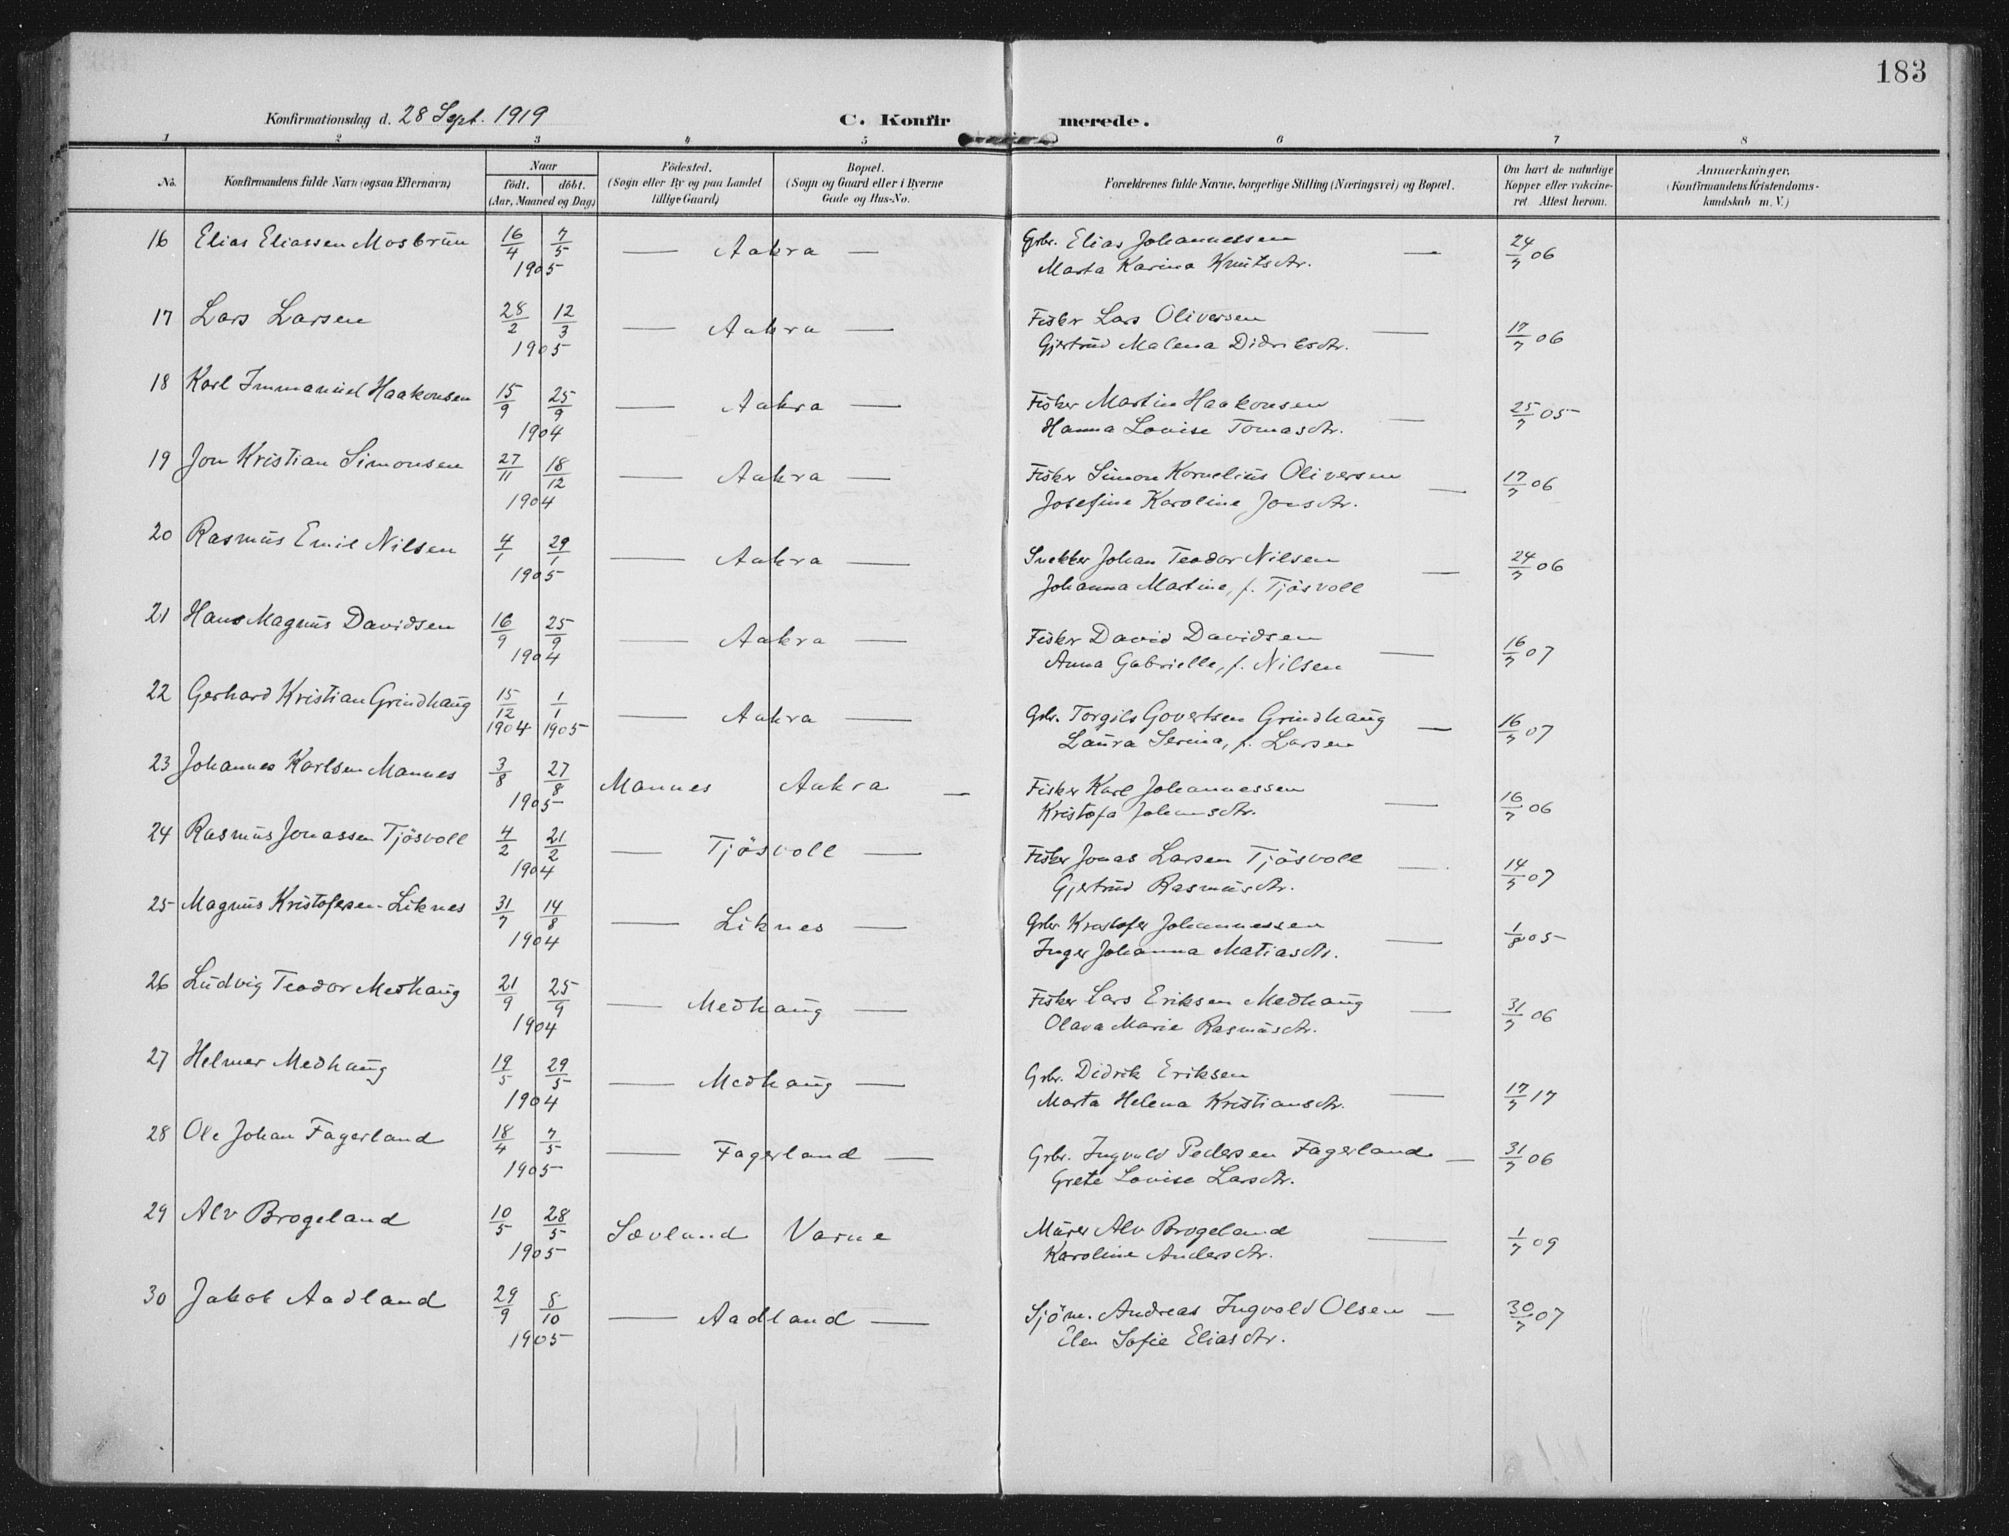 183
Konfirmationsdag d. 28 Sept. 1919
C. Konfir merede.
1 2 3 4 5 6 7 8
No.
Konfirmandens fulde Navn (ogsaa Efternavn)
Naar
födt. döbt.
(Aar, Maaned og Dag)
Födested.
(Sogn eller By og paa Landet
tillige Gaard)
Bopæl.
(Sogn og Gaard eller i Byerne
Gade og Hus-No.
Forældrenes fulde Navne, borgerlige Stilling (Næringsvei) og Bopæl.
Om havt de naturlige
Kopper eller vakcine-
ret Attest herom.
Anmærkninger.
(Konfirmandens Kristendoms-
kundskab m. V.)
16 Elias Eliassen Mosbrun 16/4 7/5 — Aakra — Grbr. Elias Johannessen — 24/7 06
1905 Marta Karina Knutsdtr.
17 Lars Larsen 28/2 12/3 — Aakra — Fisker Lars Oliversen — 17/7 06
1905 Gjertrud Malena Didriksdtr.
18 Karl Immanuel Haakonsen 15/9 25/9 — Aakra — Fisker Martin Haakonsen — 25/7 05
1904 Hanna Lovise Tomasdtr.
19 Jon Kristian Simonsen 27/11 18/12 — Aakra — Fisker Simon Kornelius Oliversen — 17/7 06
1904 Josefine Karoline Jonsdtr.
20 Rasmus Emil Nilsen 4/1 29/1 — Aakra — Snekker Johan Teodor Nilsen — 24/7 06
1905 Johanna Martine, f. Tjösvoll
21 Hans Magnus Davidsen 16/9 25/9 — Aakra — Fisker David Davidsen — 16/7 07
1904 Anna Gabrielle, f. Nilsen
22 Gerhard Kristian Grindhaug 15/12 1/1 — Aakra — Grbr. Torgils Govertsen Grindhaug — 16/7 07
1904 1905 Laura Serina, f. Larsen
23 Johannes Karlsen Mannes 3/8 27/8 Mannes Aakra — Fisker Karl Johannessen — 16/7 06
1905 Kristofa Johansdtr.
24 Rasmus Jonassen Tjösvoll 4/2 21/2 — Tjösvoll — Fisker Jonas Larsen Tjösvoll — 14/7 07
1904 Gjertrud Rasmusdtr.
25 Magnus Kristofersen Liknes 31/7 14/8 — Liknes — Grbr. Kristofer Johannessen — 1/8 05
1904 Inger Johanna Matiasdtr.
26 Ludvig Teodor Medhaug 21/9 25/9 — Medhaug — Fisker Lars Eriksen Medhaug — 31/7 06
1904 Olava Marie Rasmusdtr.
27 Helmer Medhaug 19/5 29/5 — Medhaug — Grbr. Didrik Eriksen — 17/7 17
1904 Marta Helena Kristiansdtr.
28 Ole Johan Fagerland 18/4 7/5 — Fagerland — Grbr. Ingvald Pedersen Fagerland — 31/7 06
1905 Grete Lovise Larsdtr.
29 Alv Brogeland 10/5 28/5 Sævland Varne Murer Alv Brogeland — 1/7 09
1905 Karoline Andersdtr.
30 Jakob Aadland 29/9 8/10 — Aadland — Sjöm. Andreas Ingvald Olsen — 30/7 07
1905 Elen Sofie Eliasdtr.